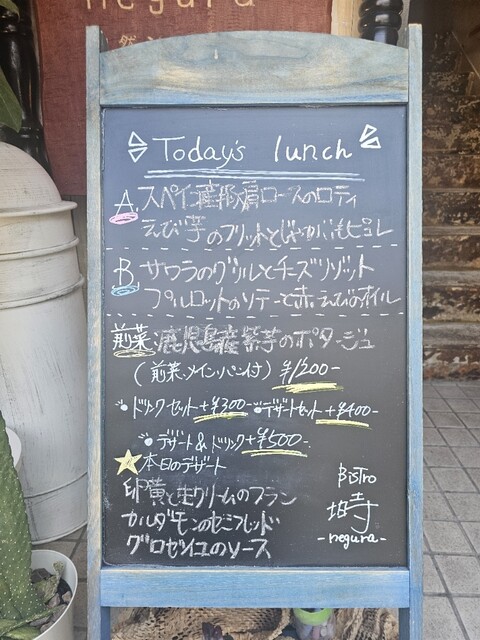 negura
Today's lunch
A. スペイン産豚肩ロースのロティ
えび芋のフリットとじゃがいもピュレ
B. サワラのグリルとチーズリゾット
プルロットのソテーと赤えびのオイル
前菜:鹿児島産紫芋のポタージュ
(前菜、メイン、パン付) ¥1200-
・ドリンクセット+¥300- ・デザートセット+¥400-
・デザート&ドリンク+¥500-
本日のデザート
卵黄と生クリームのフラン
カルダモンのセミフレッド
グロゼイユのソース
Bistro
塒
-negura-